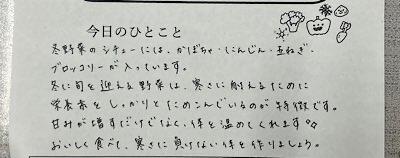 今日のひとこと
冬野菜のシチューには、かぼちゃ・にんじん・玉ねぎ・
ブロッコリーが入っています。
冬に旬を迎える野菜は、寒さに耐えるために
栄養素をしっかりとためこんでいるのが特徴です。
甘みが増すだけでなく、体を温めてくれます
おいしく食べて、寒さに負けない体を作りましょう。